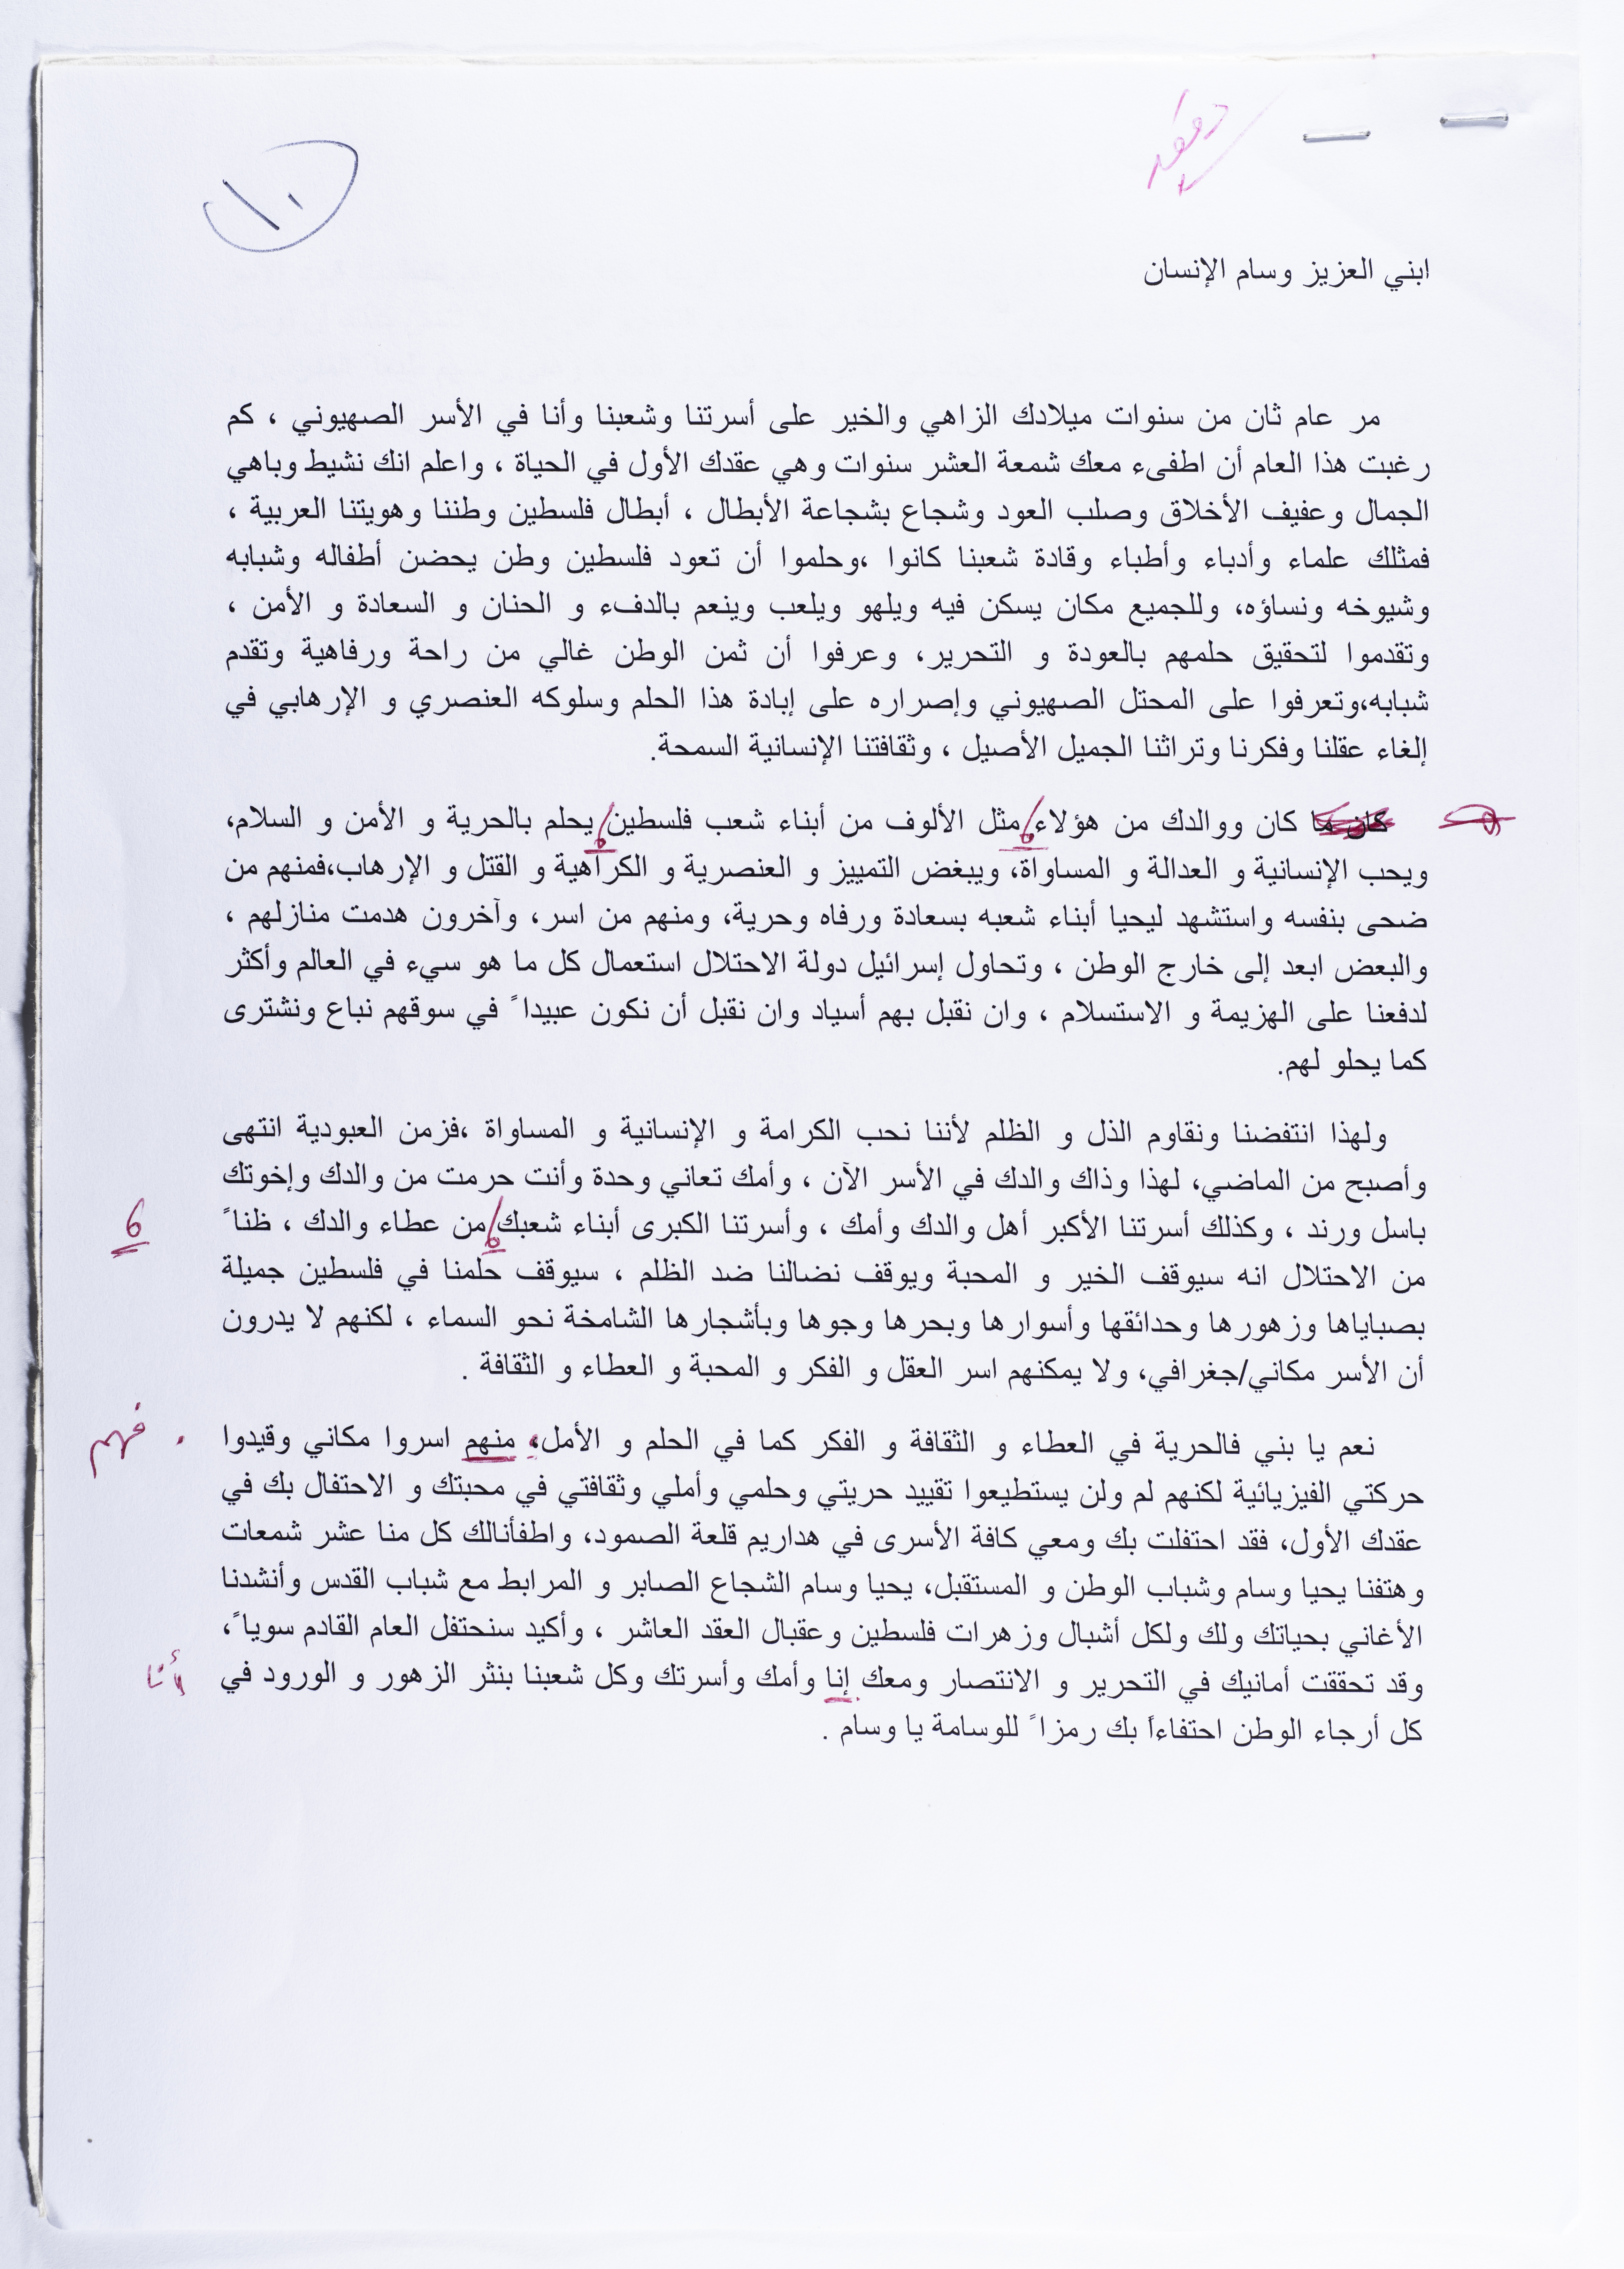 ١٠
ابني العزيز وسام الإنسان
مر عام ثان من سنوات ميلادك الزاهي والخير على أسرتنا وشعبنا وأنا في الأسر الصهيوني ، كم
رغبت هذا العام أن اطفىء معك شمعة العشر سنوات وهي عقدك الأول في الحياة ، واعلم انك نشيط وباهي
الجمال وعفيف الأخلاق وصلب العود وشجاع بشجاعة الأبطال ، أبطال فلسطين وطننا وهويتنا العربية ،
فمثلك علماء وأدباء وأطباء وقادة شعبنا كانوا ،وحلموا أن تعود فلسطين وطن يحضن أطفاله وشبابه
وشيوخه ونساؤه، وللجميع مكان يسكن فيه ويلهو ويلعب وينعم بالدفء و الحنان و السعادة و الأمن ،
وتقدموا لتحقيق حلمهم بالعودة و التحرير، وعرفوا أن ثمن الوطن غالي من راحة ورفاهية وتقدم
شبابه،وتعرفوا على المحتل الصهيوني وإصراره على إبادة هذا الحلم وسلوكه العنصري و الإرهابي في
إلغاء عقلنا وفكرنا وتراثنا الجميل الأصيل ، وثقافتنا الإنسانية السمحة.
كان ما كان ووالدك من هؤلاء، مثل الألوف من أبناء شعب فلسطين، يحلم بالحرية و الأمن و السلام،
ويحب الإنسانية و العدالة و المساواة، ويبغض التمييز و العنصرية و الكراهية و القتل و الإرهاب،فمنهم من
ضحى بنفسه واستشهد ليحيا أبناء شعبه بسعادة ورفاه وحرية، ومنهم من اسر، وآخرون هدمت منازلهم ،
والبعض ابعد إلى خارج الوطن ، وتحاول إسرائيل دولة الاحتلال استعمال كل ما هو سيء في العالم وأكثر
لدفعنا على الهزيمة و الاستسلام ، وان نقبل بهم أسياد وان نقبل أن نكون عبيدا ً في سوقهم نباع ونشترى
كما يحلو لهم.
ولهذا انتفضنا ونقاوم الذل و الظلم لأننا نحب الكرامة و الإنسانية و المساواة ،فزمن العبودية انتهى
وأصبح من الماضي، لهذا وذاك والدك في الأسر الآن ، وأمك تعاني وحدة وأنت حرمت من والدك وإخوتك
باسل ورند ، وكذلك أسرتنا الأكبر أهل والدك وأمك ، وأسرتنا الكبرى أبناء شعبك، من عطاء والدك ، ظنا ً
،
من الاحتلال انه سيوقف الخير و المحبة ويوقف نضالنا ضد الظلم ، سيوقف حلمنا في فلسطين جميلة
بصباياها وزهورها وحدائقها وأسوارها وبحرها وجوها وبأشجارها الشامخة نحو السماء ، لكنهم لا يدرون
أن الأسر مكاني/جغرافي، ولا يمكنهم اسر العقل و الفكر و المحبة و العطاء و الثقافة .
نعم يا بني فالحرية في العطاء و الثقافة و الفكر كما في الحلم و الأمل، منهم اسروا مكاني وقيدوا
. فهم
حركتي الفيزيائية لكنهم لم ولن يستطيعوا تقييد حريتي وحلمي وأملي وثقافتي في محبتك و الاحتفال بك في
عقدك الأول، فقد احتفلت بك ومعي كافة الأسرى في هداريم قلعة الصمود، واطفأنالك كل منا عشر شمعات
وهتفنا يحيا وسام وشباب الوطن و المستقبل، يحيا وسام الشجاع الصابر و المرابط مع شباب القدس وأنشدنا
الأغاني بحياتك ولك ولكل أشبال وزهرات فلسطين وعقبال العقد العاشر ، وأكيد سنحتفل العام القادم سويا ً،
وقد تحققت أمانيك في التحرير و الانتصار ومعك إنا وأمك وأسرتك وكل شعبنا بنثر الزهور و الورود في
أنا
كل أرجاء الوطن احتفاءاً بك رمزا ً للوسامة يا وسام .